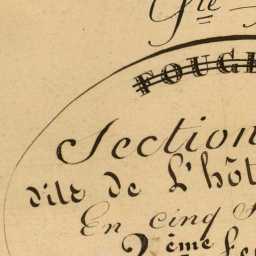 Ste
FOUG
Section
dite de L'hôt
En cinq
2ème fe